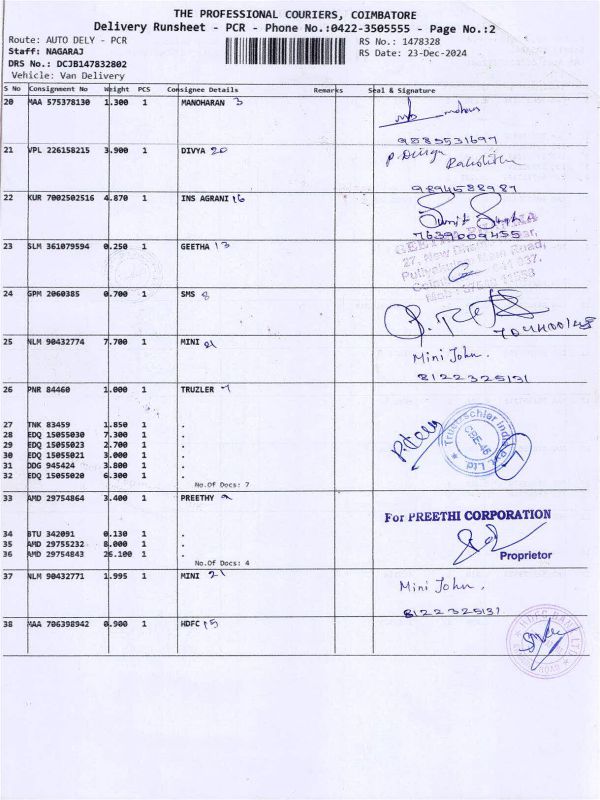 THE PROFESSIONAL COURIERS, COIMBATORE
Delivery Runsheet - PCR - Phone No.:0422-3505555 - Page No.:2
Route: AUTO DELY - PCR RS No.: 1478328
Staff: NAGARAJ RS Date: 23-Dec-2024
DRS No.: DCJB147832802
Vehicle: Van Delivery
S No Consignment No Weight PCS Consignee Details Remarks Seal & Signature
20 MAA 575378130 1.300 1 MANOHARAN 3
9885531697
21 VPL 226158215 3.900 1 DIVYA 20
9894588987
22 KUR 7002502516 4.870 1 INS AGRANI 16
Sumit Gupta
7639009455
23 SLM 361079594 0.250 1 GEETHA 13
24 GPM 2060385 0.700 1 SMS 8
25 NLM 90432774 7.700 1 MINI 21
Mini John.
8122325131
26 PNR 84460 1.000 1 TRUZLER 7
27 TNK 83459 1.850 1 .
28 EDQ 15055030 7.300 1 .
29 EDQ 15055023 2.700 1 .
30 EDQ 15055021 3.000 1 .
31 DDG 945424 3.800 1 .
32 EDQ 15055020 6.300 1 .
No.Of Docs: 7
33 AMD 29754864 3.400 1 PREETHY 9
For PREETHI CORPORATION
34 BTU 342091 0.130 1 .
35 AMD 29755232 8.000 1 .
36 AMD 29754843 26.100 1 .
Proprietor
No.Of Docs: 4
37 NLM 90432771 1.995 1 MINI 21
Mini John.
8122325131
38 MAA 706398942 0.900 1 HDFC 15